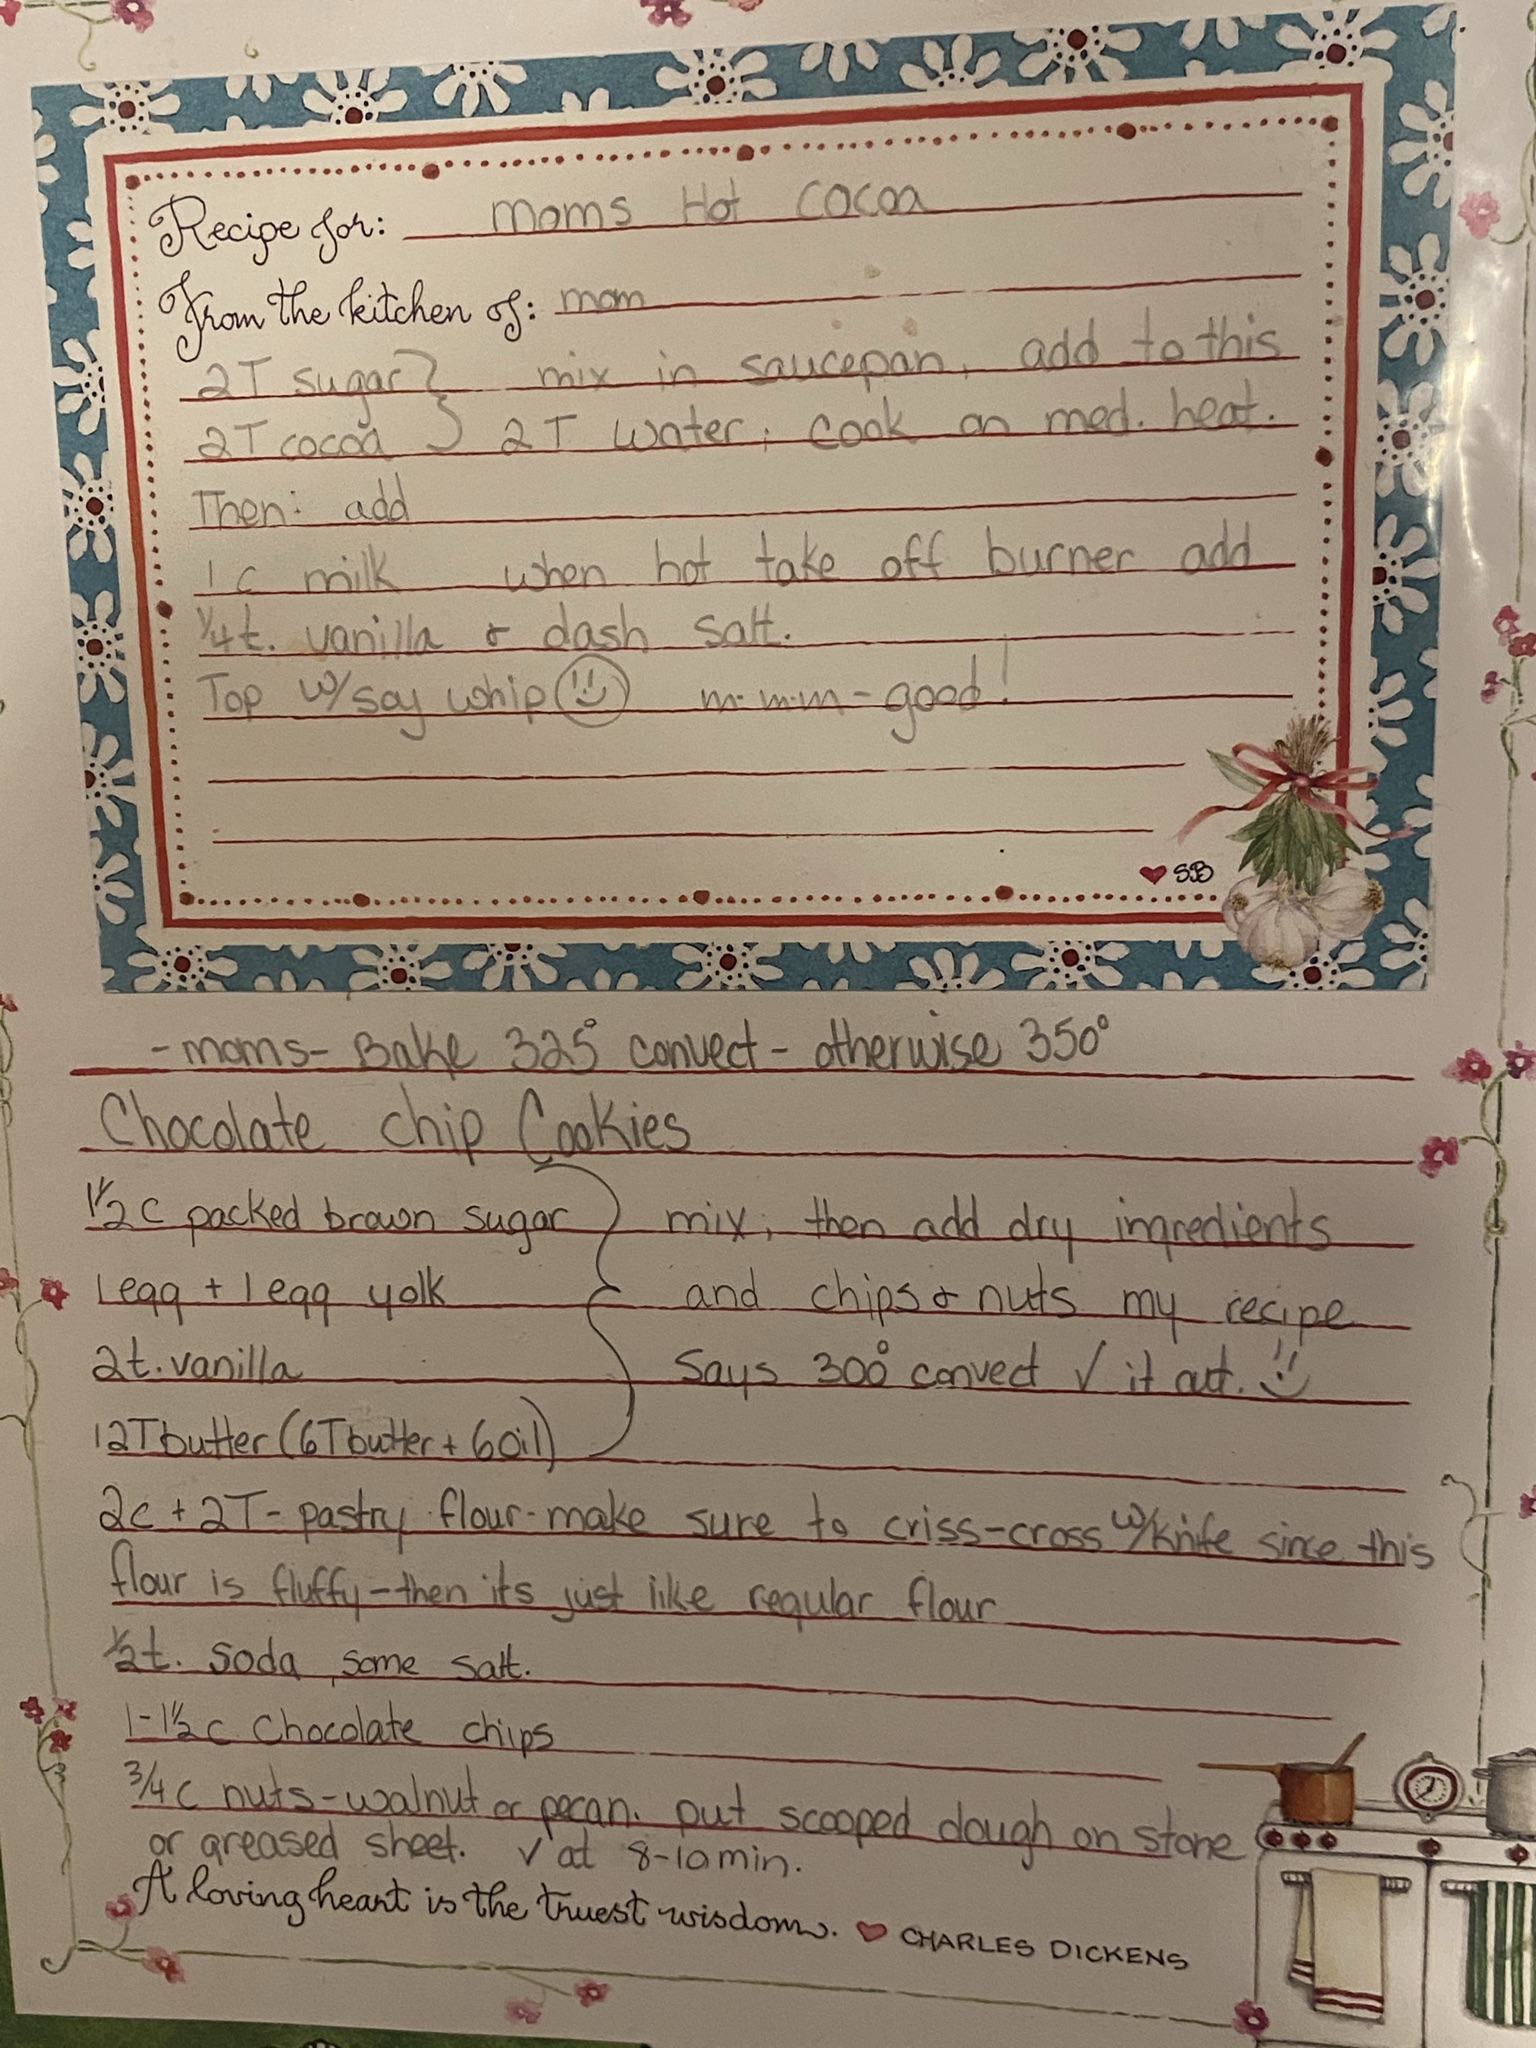 Recipe for: moms Hot Cocoa
From the kitchen of: mom
2T sugar } mix in saucepan, add to this
2T cocoa } 2T water; cook on med. heat.
Then: add
1 c milk when hot take off burner add
1/4 t. vanilla & dash salt.
Top w/soy whip m-m-m-good!
SB
-moms- Bake 325° convect - otherwise 350°
Chocolate chip Cookies
1 1/2 c packed brown sugar } mix, then add dry ingredients
1 egg + 1 egg yolk and chips & nuts my recipe
2t. vanilla says 300° convect ✓ it out.
12T butter (6T butter + 6 oil)
2c + 2T - pastry flour-make sure to criss-cross w/knife since this
flour is fluffy-then its just like regular flour
1/2 t. soda, some salt.
1-1 1/2 c Chocolate chips
3/4 c nuts-walnut or pecan. put scooped dough on stone
or greased sheet. ✓ at 8-10 min.
A loving heart is the truest wisdom. ♥ CHARLES DICKENS